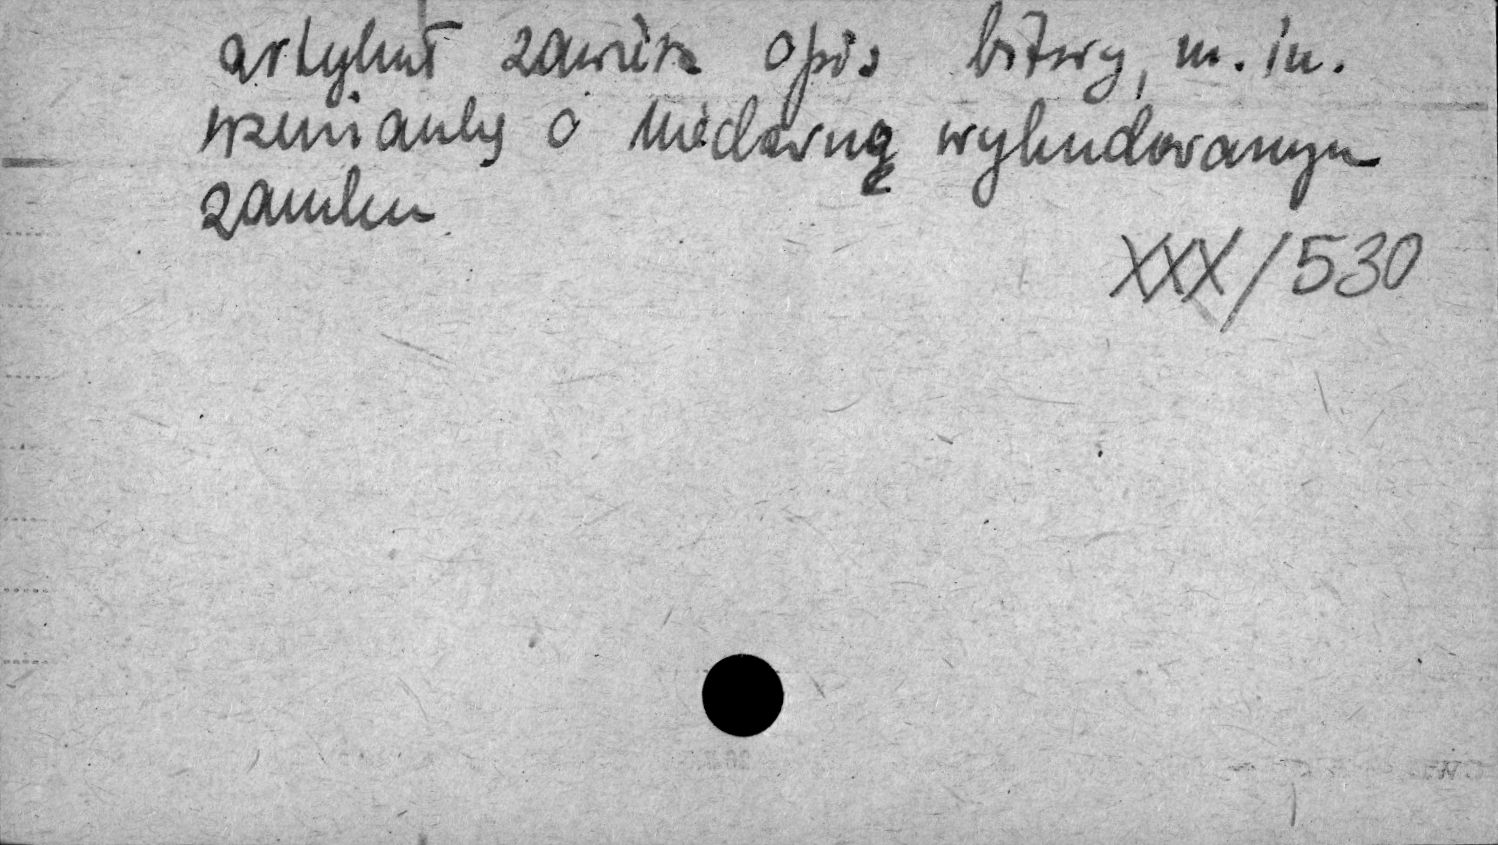 artykuł zawiera opis bitwy, m. in.
wzmiankę o niedawno wybudowanym
zamku
XXX/530